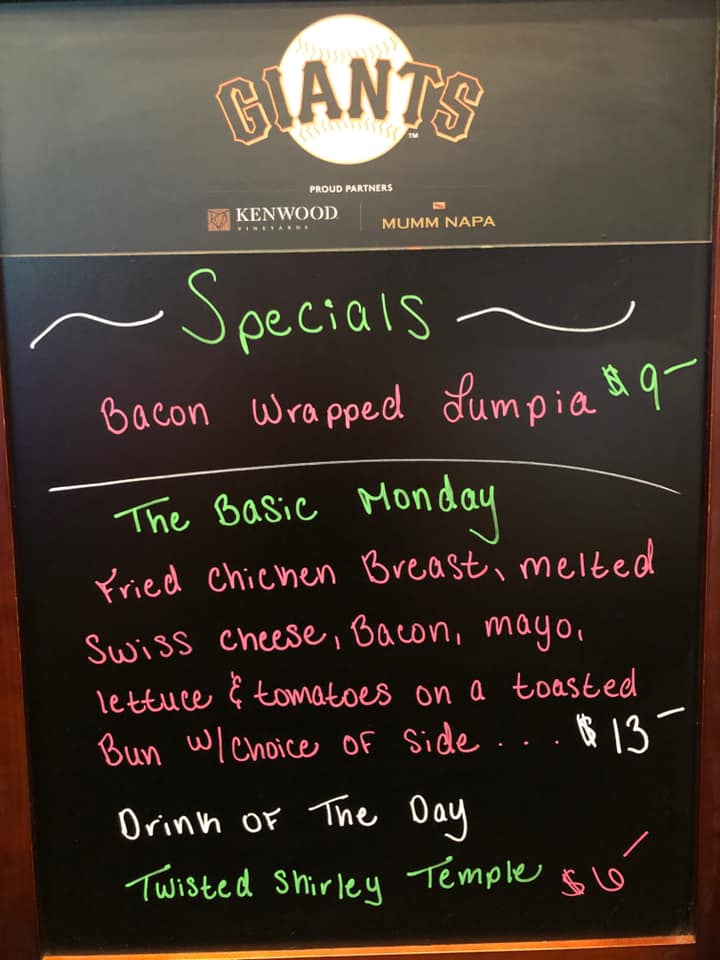 GIANTS
TM
PROUD PARTNERS
KENWOOD
VINEYARDS
MUMM NAPA
Specials
Bacon Wrapped Lumpia $9-
The Basic Monday
Fried Chicken Breast, melted
Swiss cheese, Bacon, mayo,
lettuce & tomatoes on a toasted
Bun w/choice of side... $13-
Drink of The Day
Twisted Shirley Temple $6-